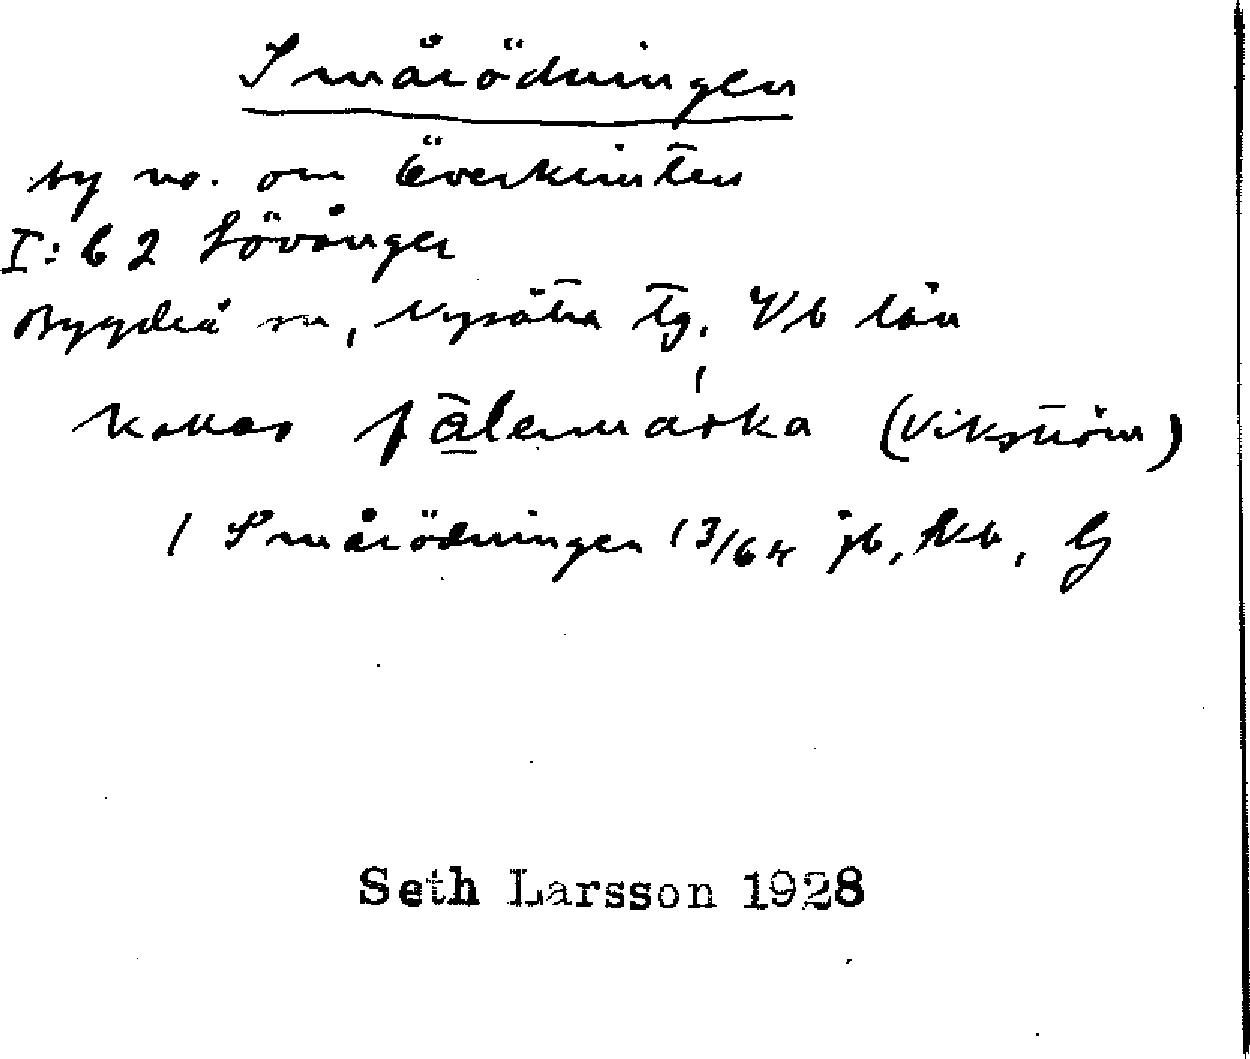 Smårödningen
by no. om Överklinten
I: 62 Lövånger
Bygdeå sn, Nysätra tg. Vb län
kallas fälemárka (Vikström)
/ Smårödningen 13/64 jb, Kb, G
Seth Larsson 1928